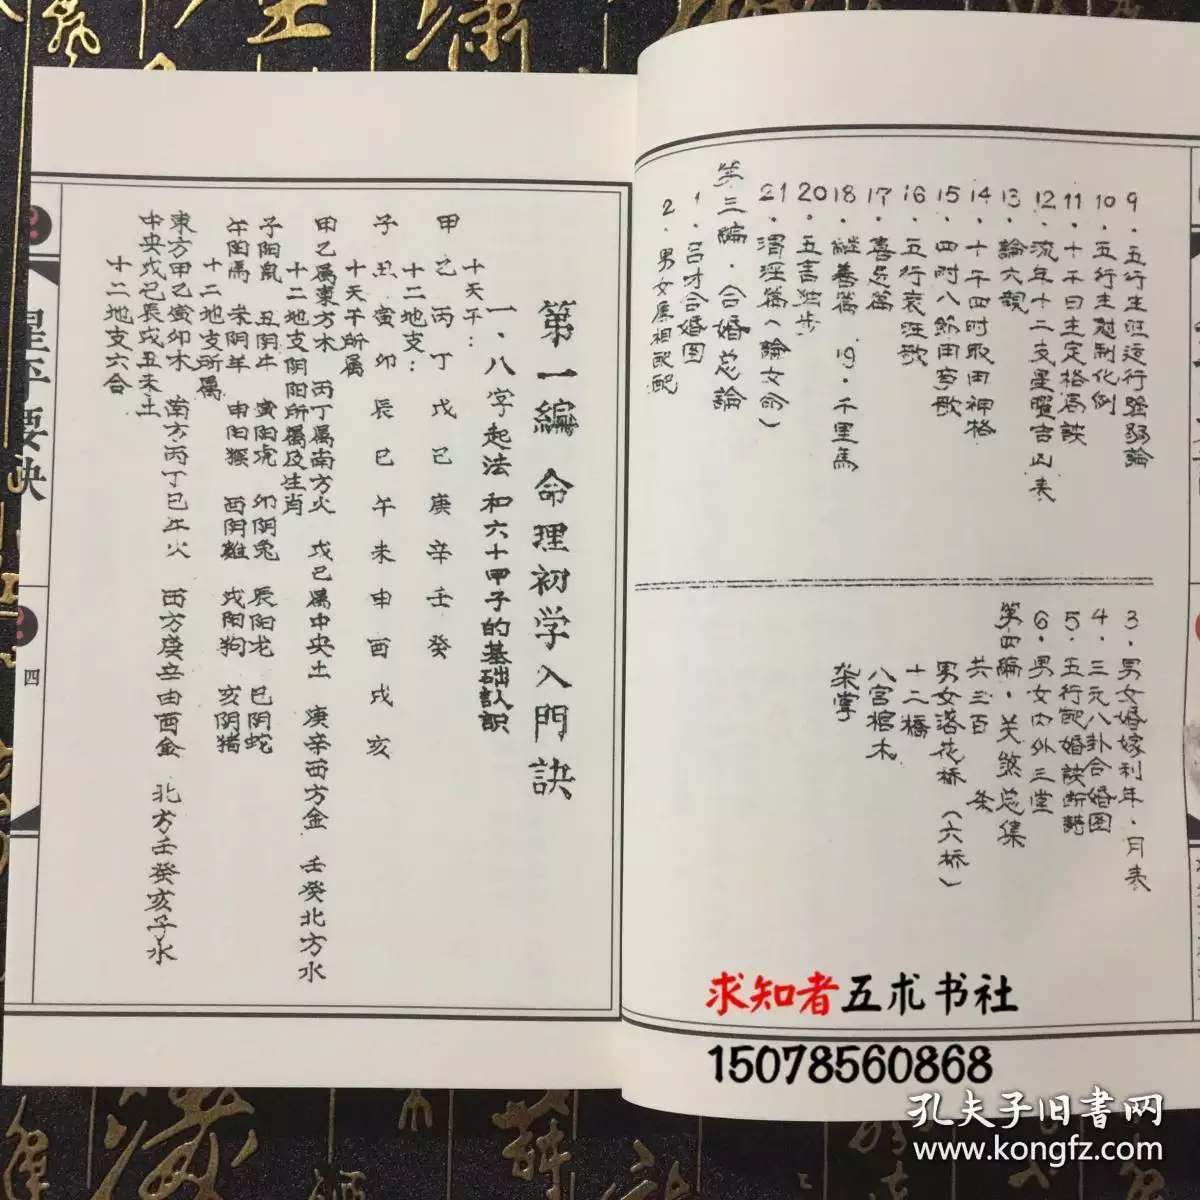 9．五行生旺运行强弱論
10．五行生尅制化例
11．十干日主定格局訣
12．流年十二支星曜吉凶表
13．論六親
14．十干四时取用神格
15．四时八節用事歌
16．五行衰旺歌
17．喜忌篇
18．継善篇　19．千里馬
20．五言独步
21．渭泾篇（論女命）
第三编．合婚总論
1．吕才合婚图
2．男女焦相配配
3．男女婚嫁利年．月表
4．三元八卦合婚图
5．五行配婚訣断語
6．男女内外三堂
第四编．关煞总集
共三百　条
男女落花桥（六桥）
十二橋
八宫棺木
架掌
第一編 命理初学入門訣
一．八字起法和六十甲子的基础认识
十天干：
甲乙丙丁戊己庚辛壬癸
十二地支：
子丑寅卯辰巳午未申酉戌亥
十天干所属
甲乙属東方木　丙丁属南方火　戊己属中央土　庚辛西方金　壬癸北方水
十二地支阴阳所属及生肖
子阳鼠　丑阴牛　寅阳虎　卯阴兔　辰阳龙　巳阴蛇
午阳馬　未阴羊　申阳猴　酉阴雞　戌阳狗　亥阴猪
十二地支所属
東方甲乙寅卯木　南方丙丁巳午火　西方庚辛申酉金　北方壬癸亥子水
中央戊己辰戌丑未土
十二地支六合
星平要诀
四
求知者五术书社
15078560868
孔夫子旧書网
www.kongfz.com